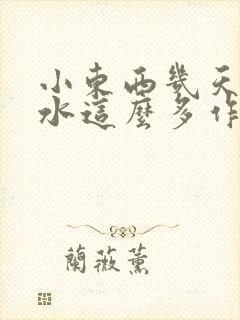 小東西幾天
水這麼多作
蘭薇薰